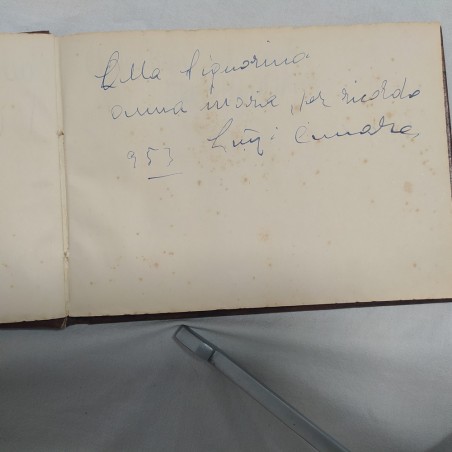 Alla Signorina
anna maria, per ricordo
953 Luigi